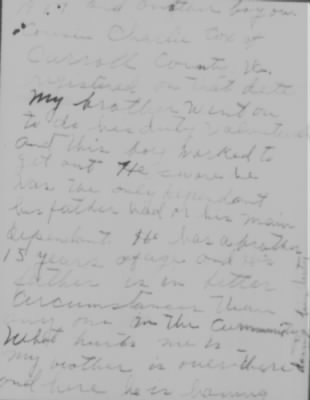 and another boy our
Cousin Charlie Cox of
Carroll County, Va.
registered on that date
My brother went on
to do his duty
And this boy worked to
get out He swore he
was the only dependant
his father had or his main
dependant He has a brother
15 years of age and his
father is in better
Circumstances than
any one in the Community
What hurts me is
my brother is over there
and here he is